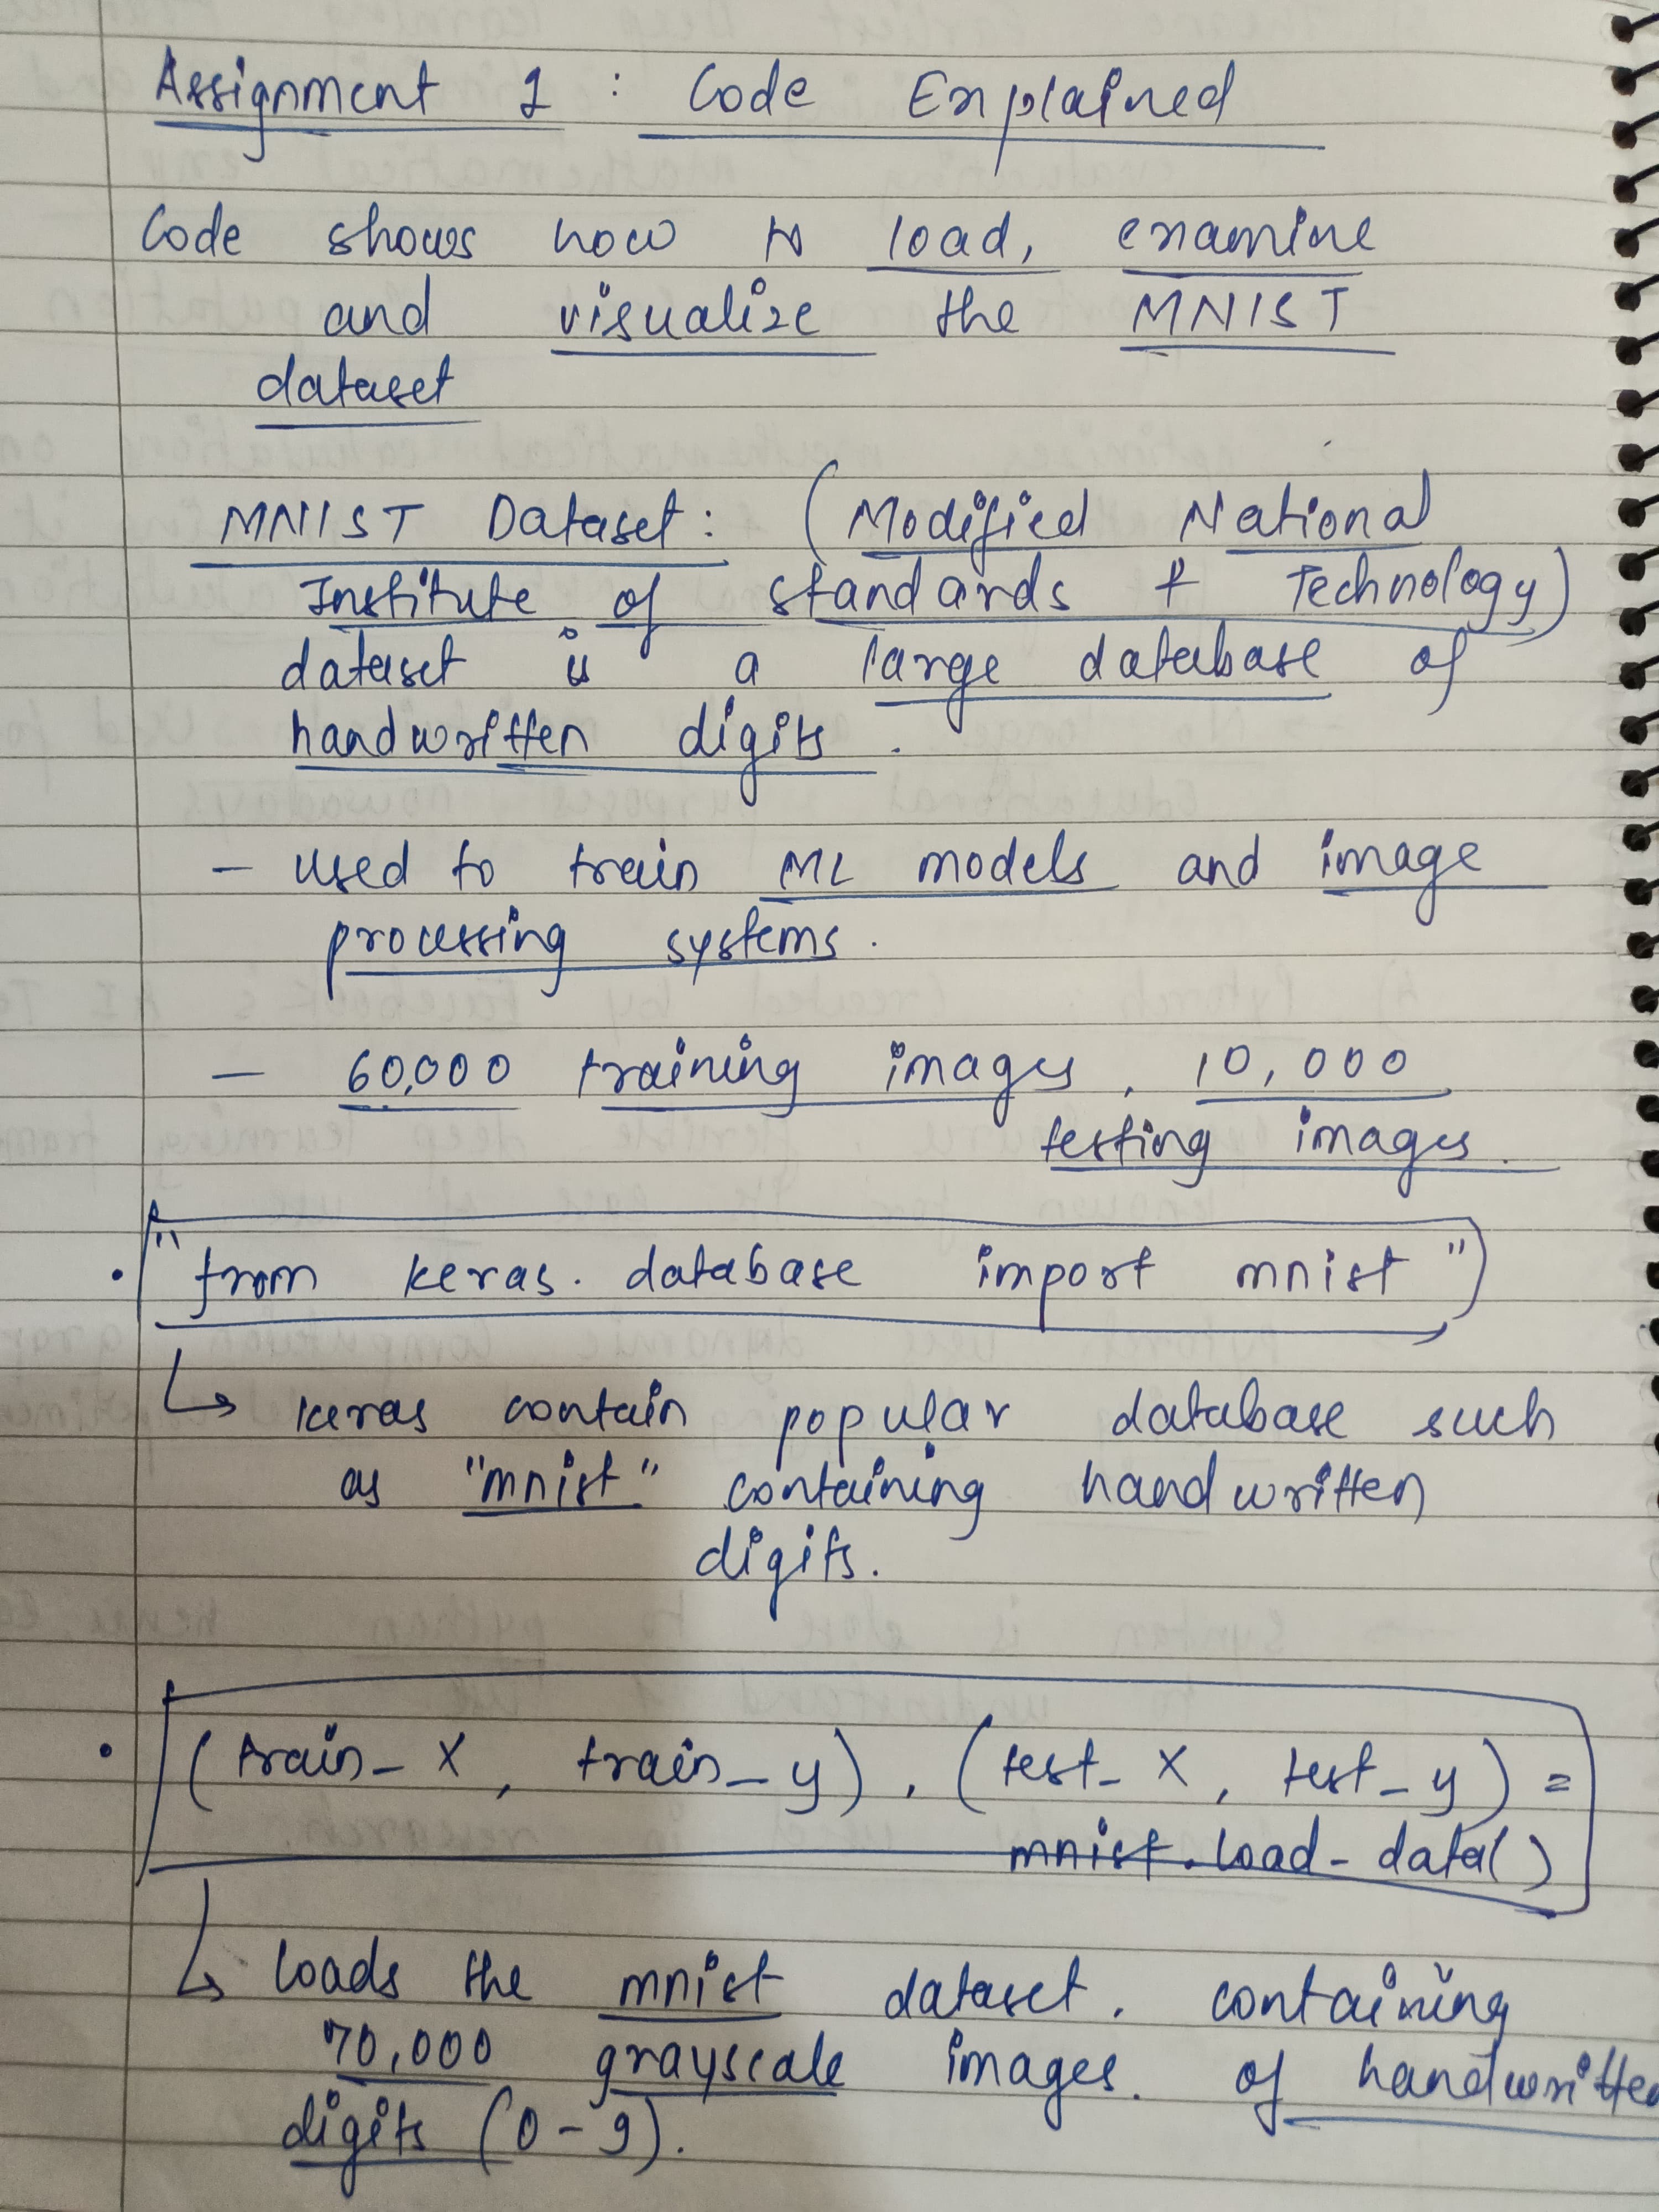 Assignment 1 : Code Explained
Code shows how to load, examine
and visualize the MNIST
dataset
MNIST Dataset: (Modified National
Institute of standards & Technology)
dataset is a large database of
handwritten digits.
- used to train ML models and image
processing systems.
- 60,000 training images, 10,000
testing images.
• "from keras. database import mnist"
↳ keras contain popular database such
as "mnist" containing handwritten
digits.
• (train_X, train_y), (test_X, test_y) =
mnist.load_data()
↳ loads the mnist dataset. containing
70,000 grayscale images. of handwritten
digits (0-9).